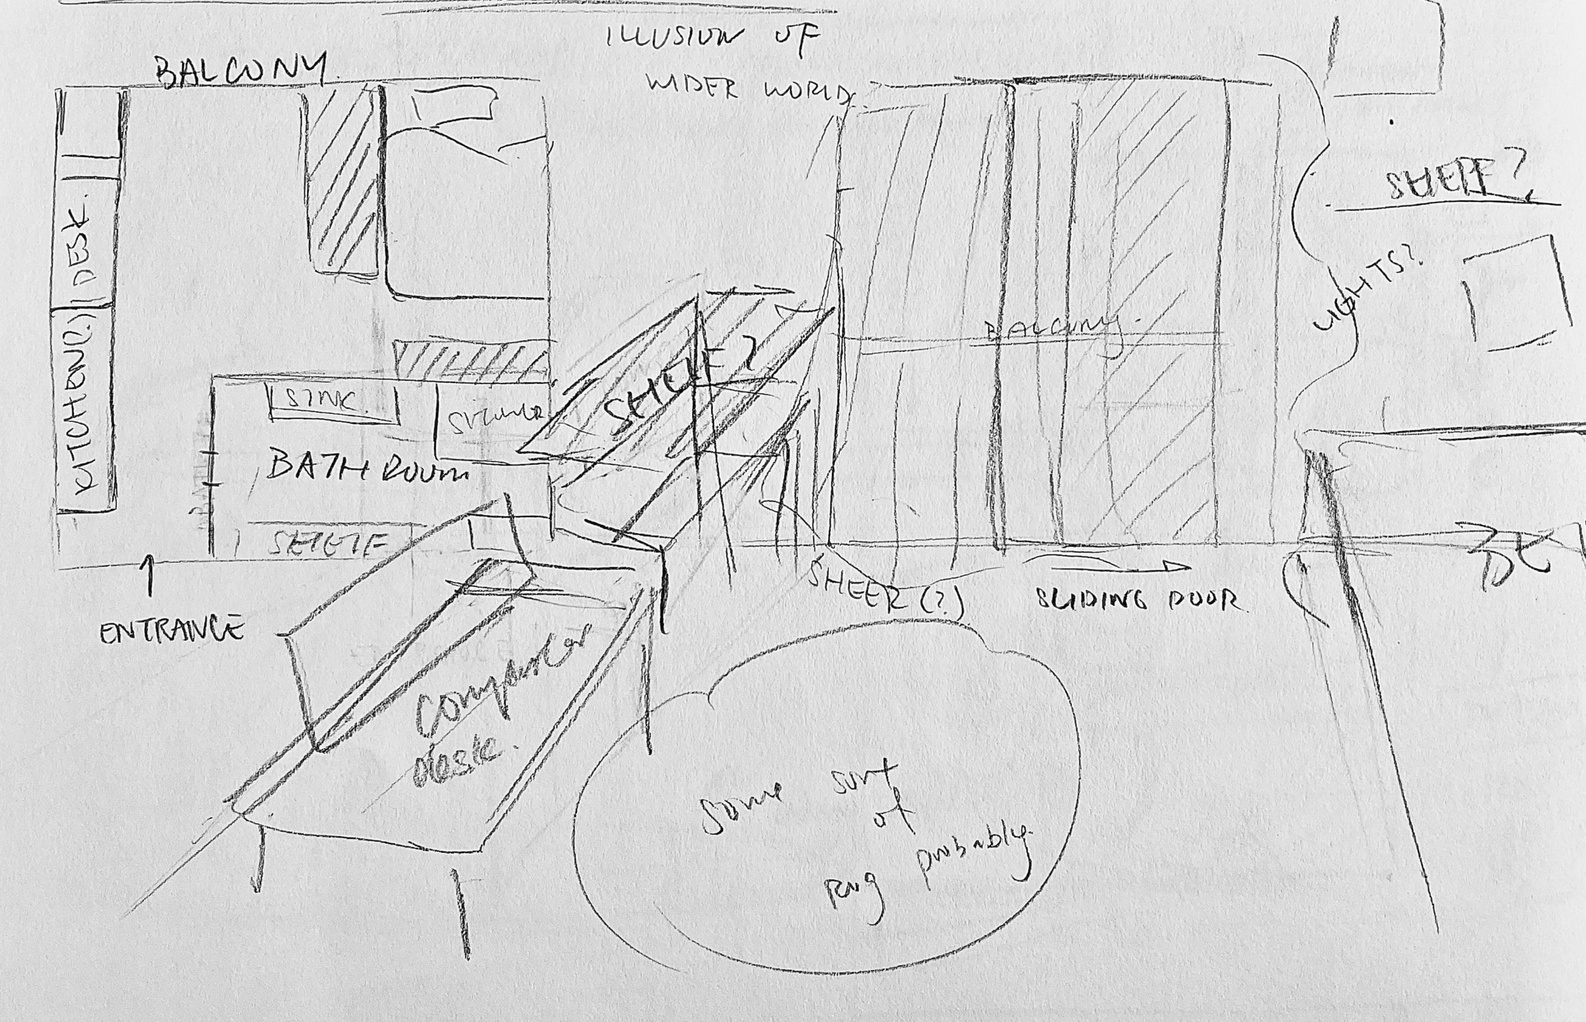 ILLUSION OF
WIDER WORLD?
BALCONY
SHELF?
DESK
LIGHTS?
BALCONY
KITCHEN(?)
SHELF?
SINK
SHOWER
BATHROOM
SHELF
SHEER(?)
SLIDING DOOR
ENTRANCE
Computer
desk.
some sort
of
rug probably.